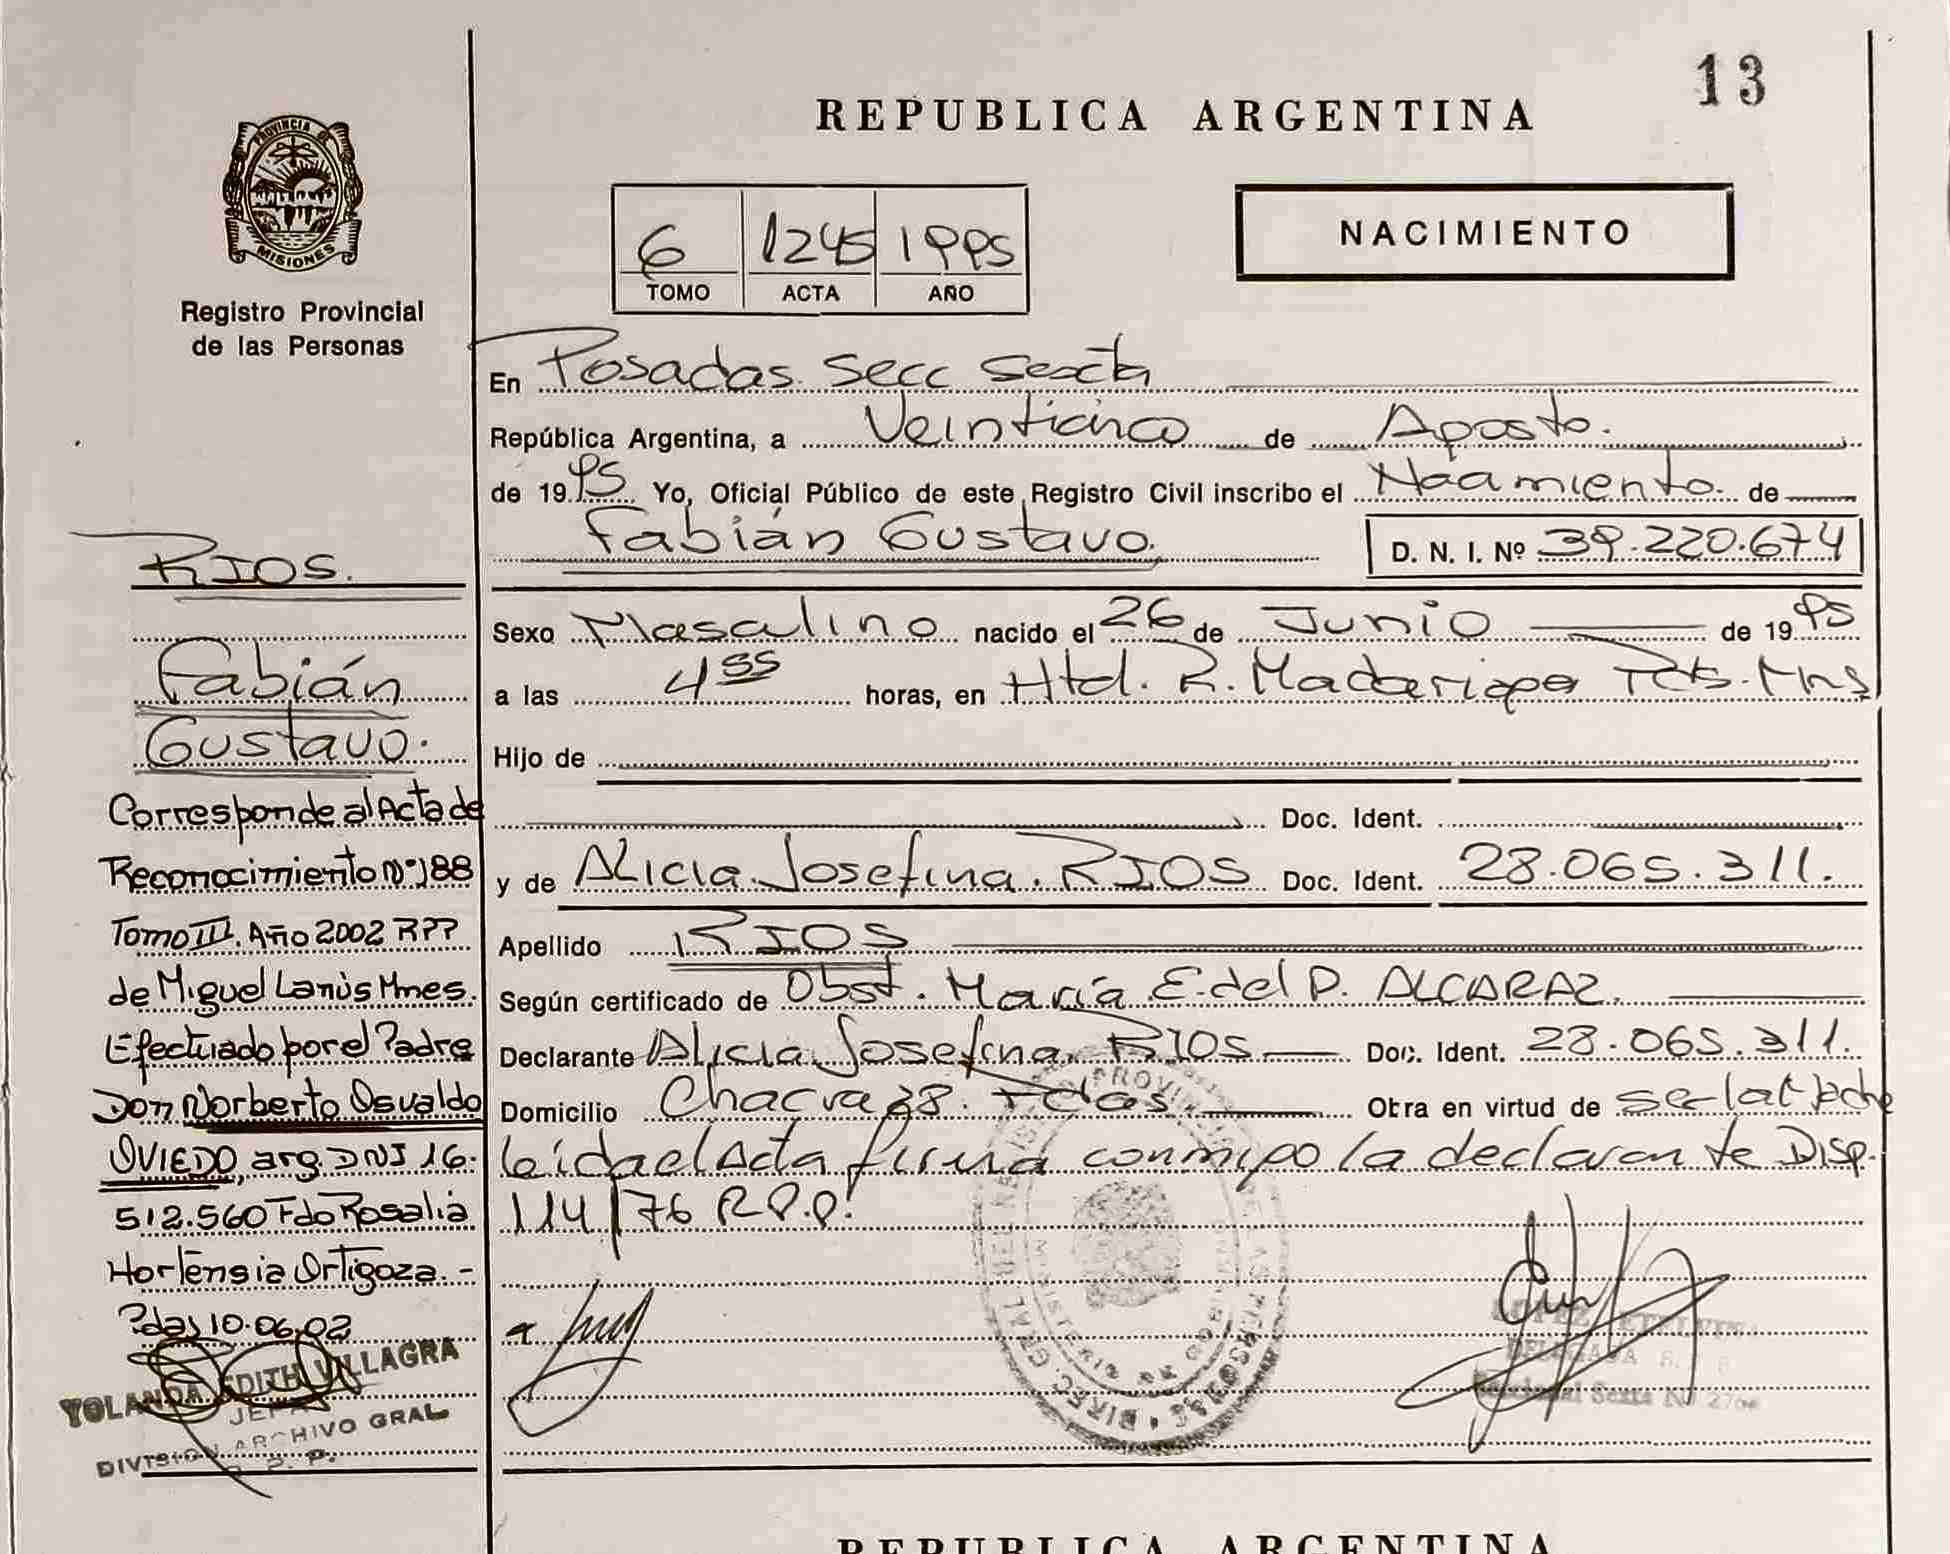 13
REPUBLICA ARGENTINA
PROVINCIA DE
MISIONES
Registro Provincial
de las Personas
6 1245 1995
TOMO ACTA AÑO
NACIMIENTO
En Posadas Secc Sexta
República Argentina, a Veinticinco de Agosto.
de 1995 Yo, Oficial Público de este Registro Civil inscribo el Nacimiento de
Fabián Gustavo.
D. N. I. Nº 39.220.674
Sexo Masculino nacido el 26 de Junio de 1995
a las 4 55 horas, en Htal. R. Madariaga Pdas. Mns
Hijo de
Doc. Ident.
y de Alicia Josefina RIOS Doc. Ident. 28.065.311.
Apellido RIOS
Según certificado de Obst. María E. del P. ALCARAZ.
Declarante Alicia Josefina RIOS Doc. Ident. 28.065.311.
Domicilio Chacra 38. Pdas. Otra en virtud de
leída el Acta firma conmigo la declarante Disp.
114/76 R.P.P.
RIOS.
Fabián
Gustavo.
Corresponde al Acta de
Reconocimiento Nº 188
Tomo III. Año 2002 RPP
de Miguel Lanús Mnes.
Efectuado por el Padre
Don Norberto Osvaldo
OVIEDO, arg. DNI 16.
512.560 Fdo Rosalia
Hortensia Ortigoza. -
Pdas 10.06.02
YOLANDA EDITH VILLAGRA
JEFA
DIVISION ARCHIVO GRAL
R. P. P.
DELEGADA
Seccional Sexta
REPUBLICA ARGENTINA